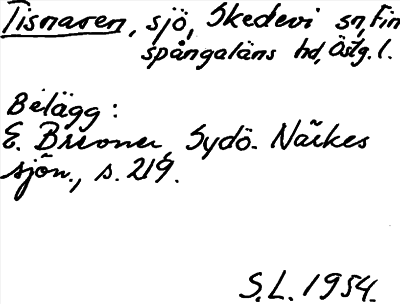 Tisnaren, sjö, Skedevi sn, Fin
spångaläns hd, Östg. l.
Belägg:
E. Brevner, Sydö. Närkes
sjön., s. 219.
S.L. 1954.